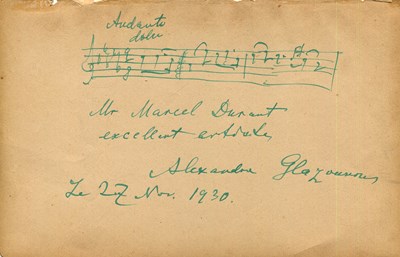 Andante
dolce
Mr Marcel Durant
excellent artiste
Alexandre Glazounow
Le 27 Nov. 1930.